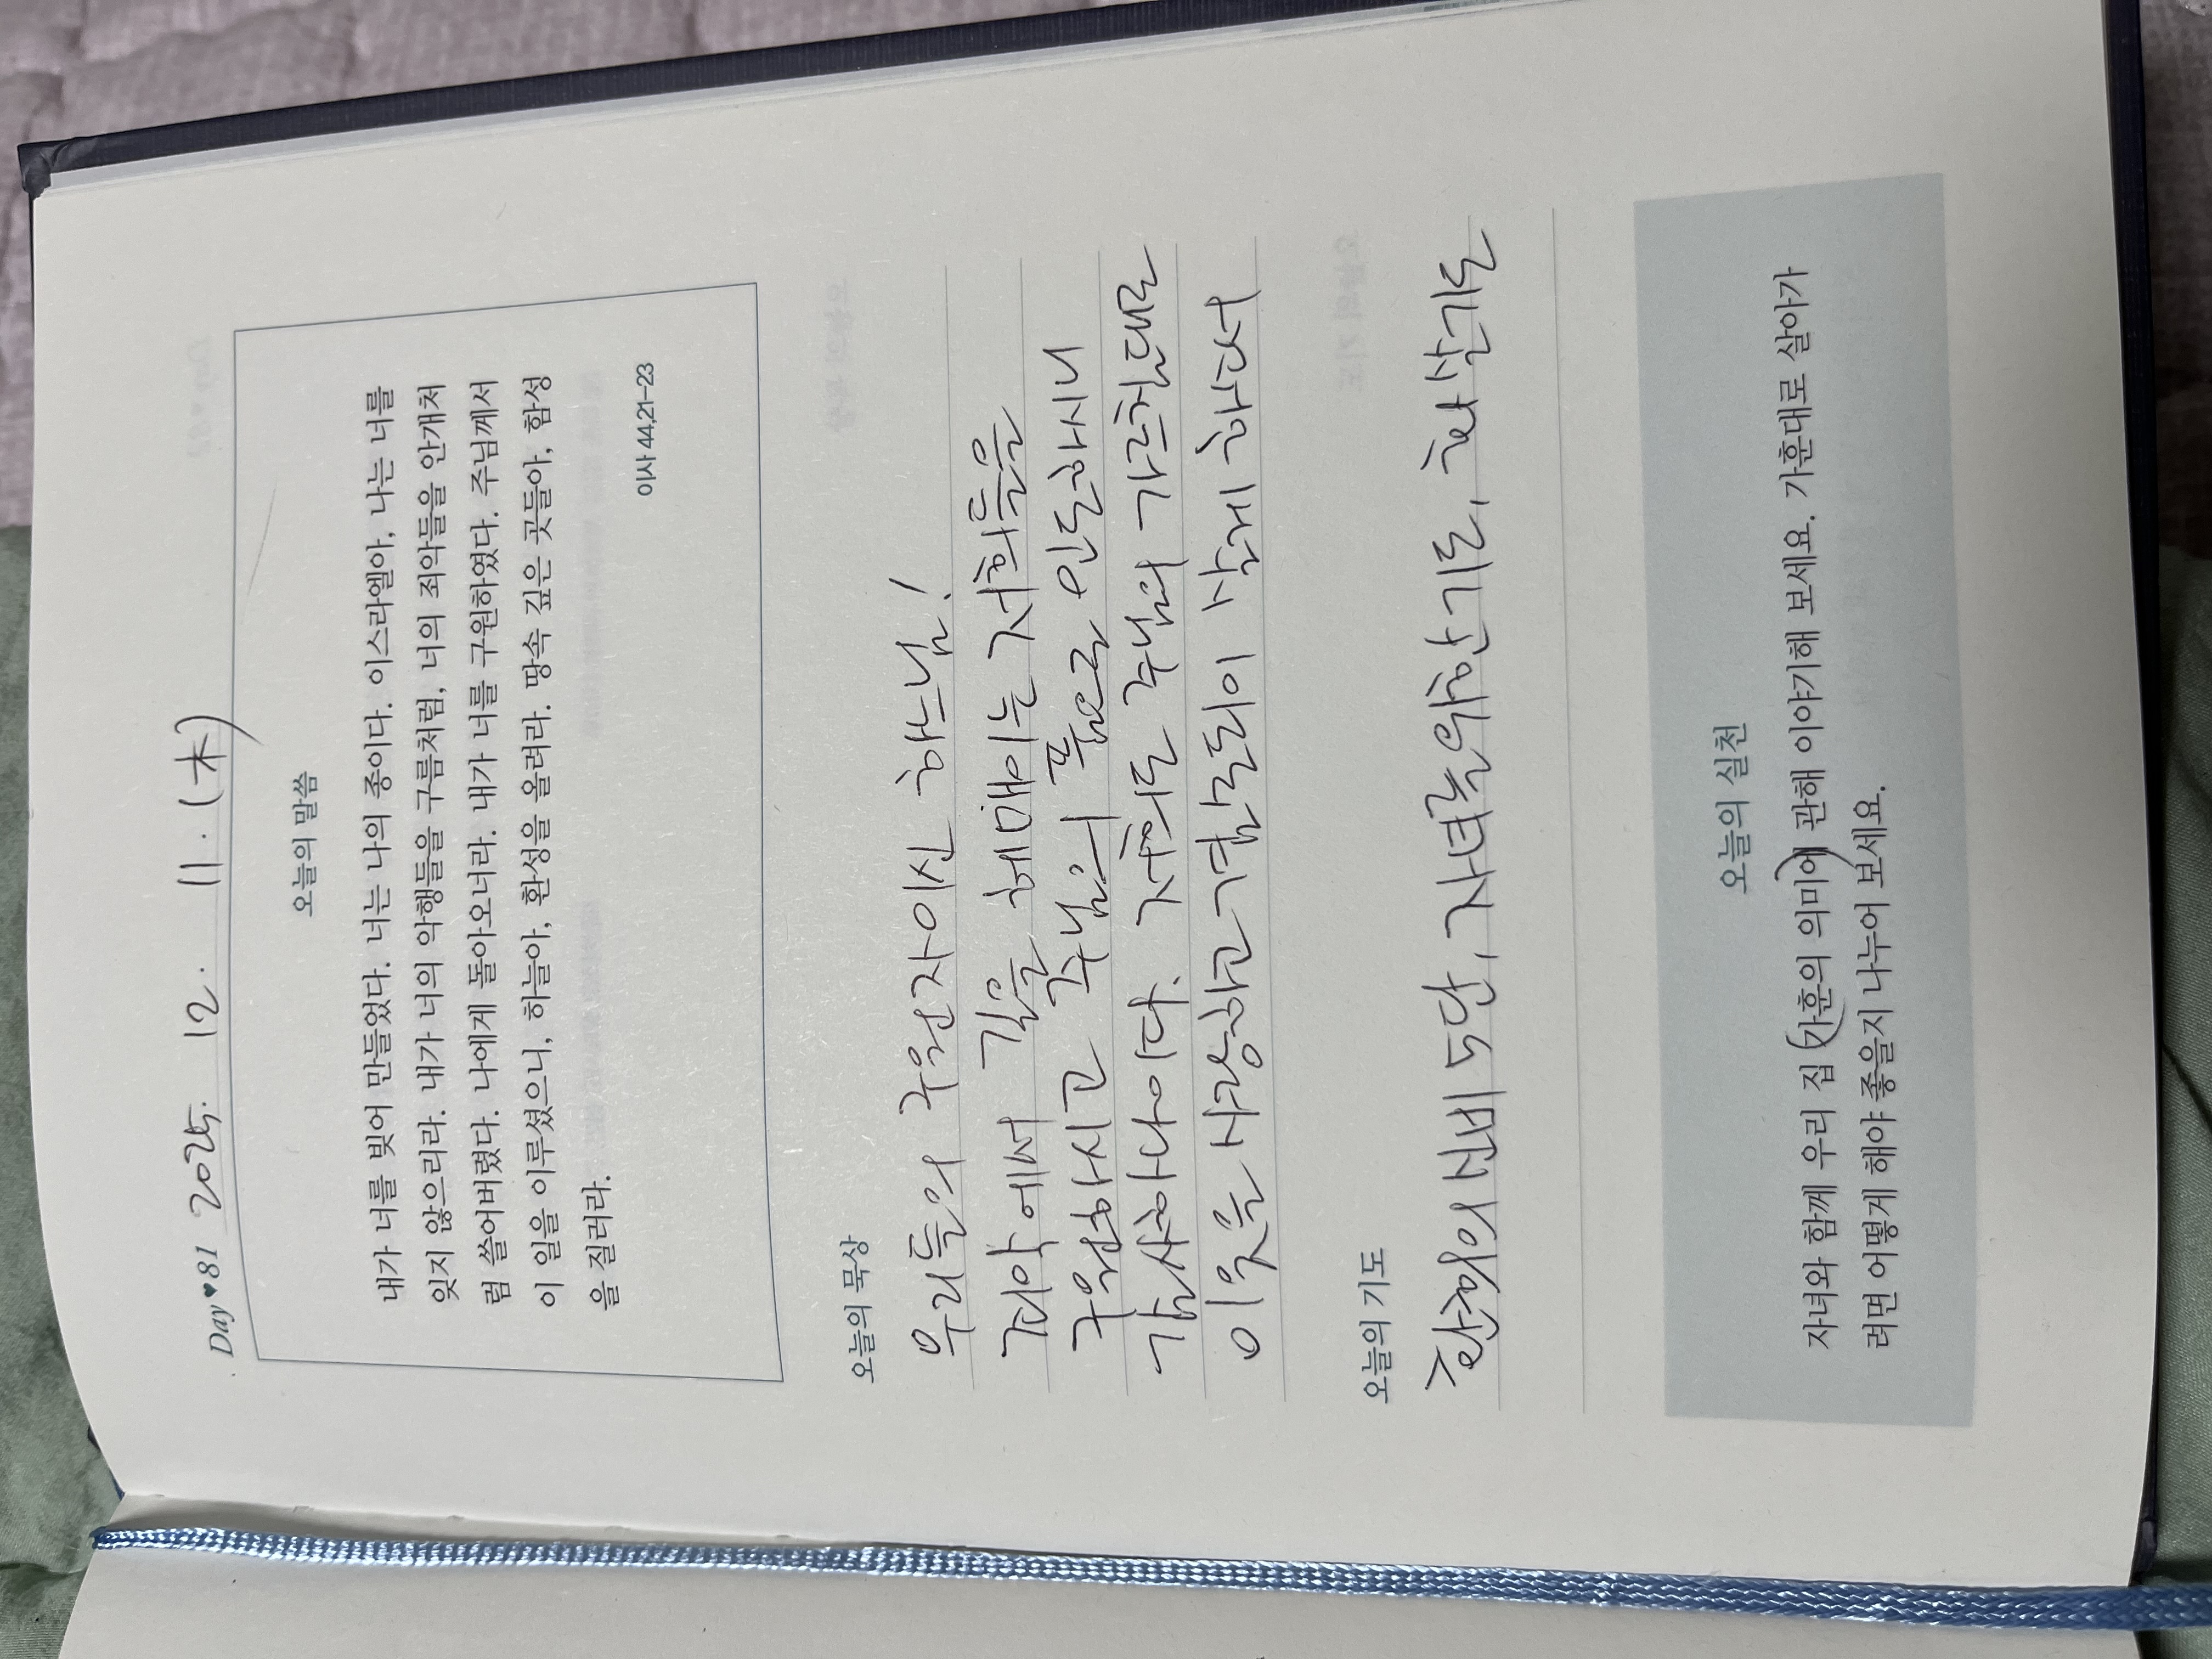 Day♥81 2025. 12. 11. (木)
오늘의 말씀
내가 너를 빚어 만들었다. 너는 나의 종이다. 이스라엘아, 나는 너를
잊지 않으리라. 내가 너의 악행들을 구름처럼, 너의 죄악들을 안개처
럼 쓸어버렸다. 나에게 돌아오너라. 내가 너를 구원하였다. 주님께서
이 일을 이루셨으니, 하늘아, 환성을 올려라. 땅속 깊은 곳들아, 함성
을 질러라.
이사 44,21-23
오늘의 묵상
우리들의 구원자이신 하느님!
죄악에서 길을 헤매이는 저희들을
구원하시고 주님의 품으로 인도하시니
감사하나이다. 저희도 주님의 가르침대로
이웃을 사랑하고 겸손되이 살게 하소서
오늘의 기도
환희의 신비 5단, 자녀를위한기도, 화살기도
오늘의 실천
자녀와 함께 우리 집 (가훈의 의미)에 관해 이야기해 보세요. 가훈대로 살아가
려면 어떻게 해야 좋을지 나누어 보세요.